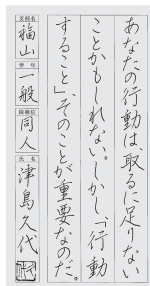 あなたの行動は、取るに足りない
ことかもしれない。しかし、「行動
すること」、そのことが重要なのだ。
支部名
福山
学年
一般
段級位
同人
氏名
津島久代